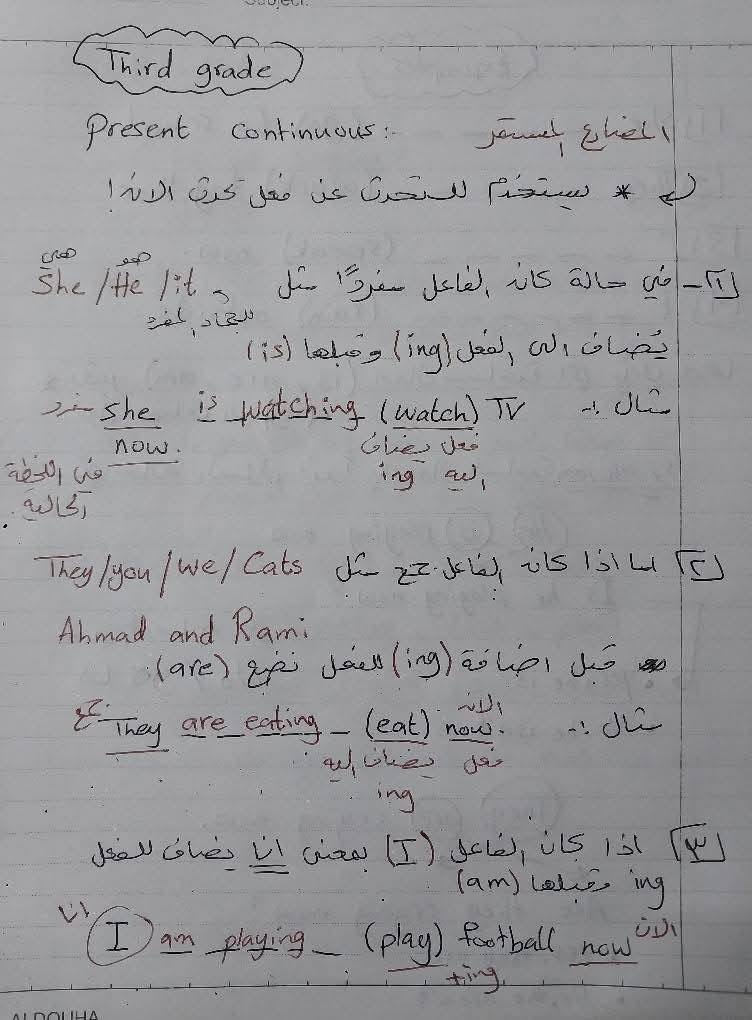 Subject:
Third grade
Present continuous:- المضارع المستمر
* يستخدم للتحدث عن فعل يحدث الانه!
هي هو
١- في حالة كانه الفاعل مفردًا مثل She / He / it
للجماد المفرد
يُضاف الى الفعل (ing) وقبلها (is)
مثال :- she is watching (watch) TV مفرد
now. فعل يضاف
في اللحظة اليه ing
الحالية.
٢ اما اذا كانه الفاعل جمع مثل They/you/we/Cats
Ahmad and Rami
قبل اضافة (ing) للفعل نضع (are)
الانه
مثال :- They are eating (eat) now. جمع
فعل يضاف اليه
ing
٣ اذا كان الفاعل (I) بمعنى انا يضاف للفعل
ing وقبلها (am)
انا I am playing (play) football now الان
+ing
ALDOUHA